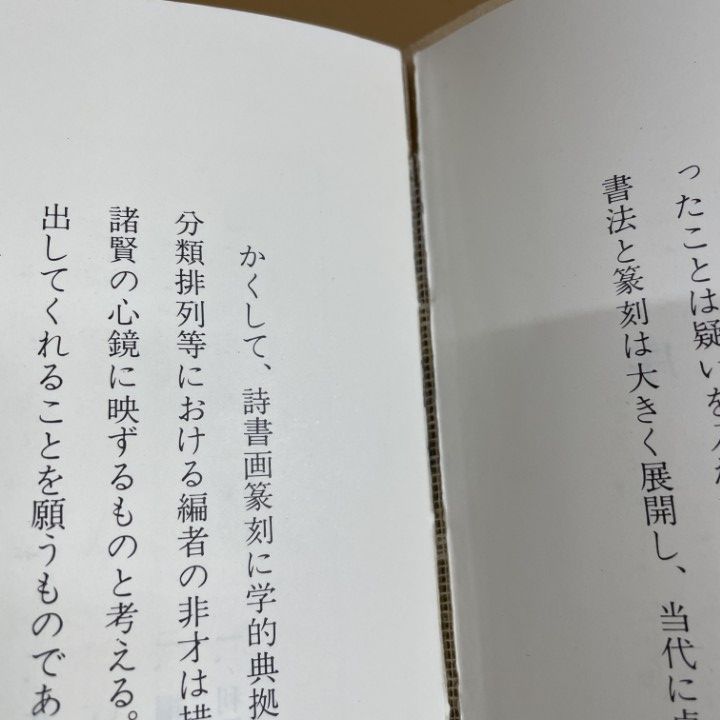 ったことは疑いを
書法と篆刻は大きく展開し、当代に
かくして、詩書画篆刻に学的典拠
分類排列等における編者の非才は措
諸賢の心鏡に映ずるものと考える。
出してくれることを願うものであ